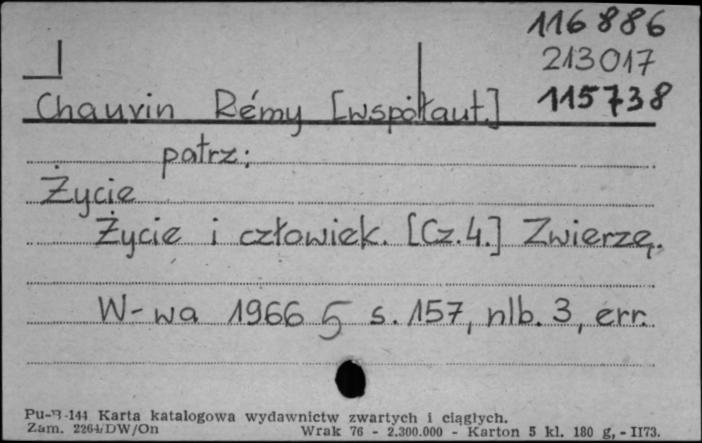 116 886
213017
Chauvin Rémy [współaut.] 115738
patrz:
Życie
Życie i człowiek. [Cz. 4.] Zwierzę.
W-wa 1966 5 s. 157, nlb. 3, err.
Pu-B-144 Karta katalogowa wydawnictw zwartych i ciągłych.
Zam. 2264/DW/On Wrak 76 - 2.300.000 - Karton 5 kl. 180 g, - II73.